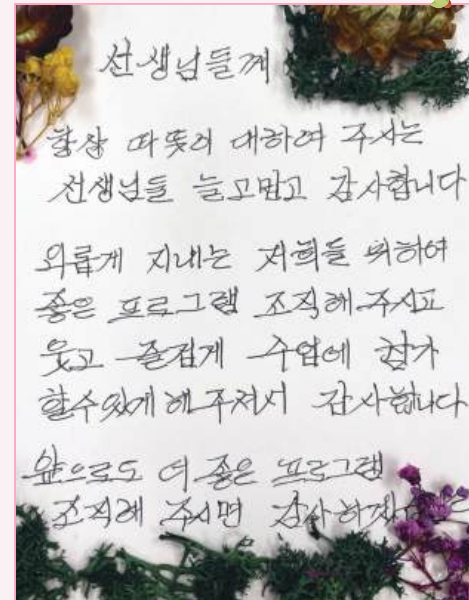 선생님들께
항상 따뜻이 대하여 주시는
선생님들 늘 고맙고 감사합니다
외롭게 지내는 저희들 위하여
좋은 프로그램 조직해 주시고
웃고 즐겁게 수업에 참가
할수있게 해 주셔서 감사합니다
앞으로도 더 좋은 프로그램
조직해 주시면 감사하겠